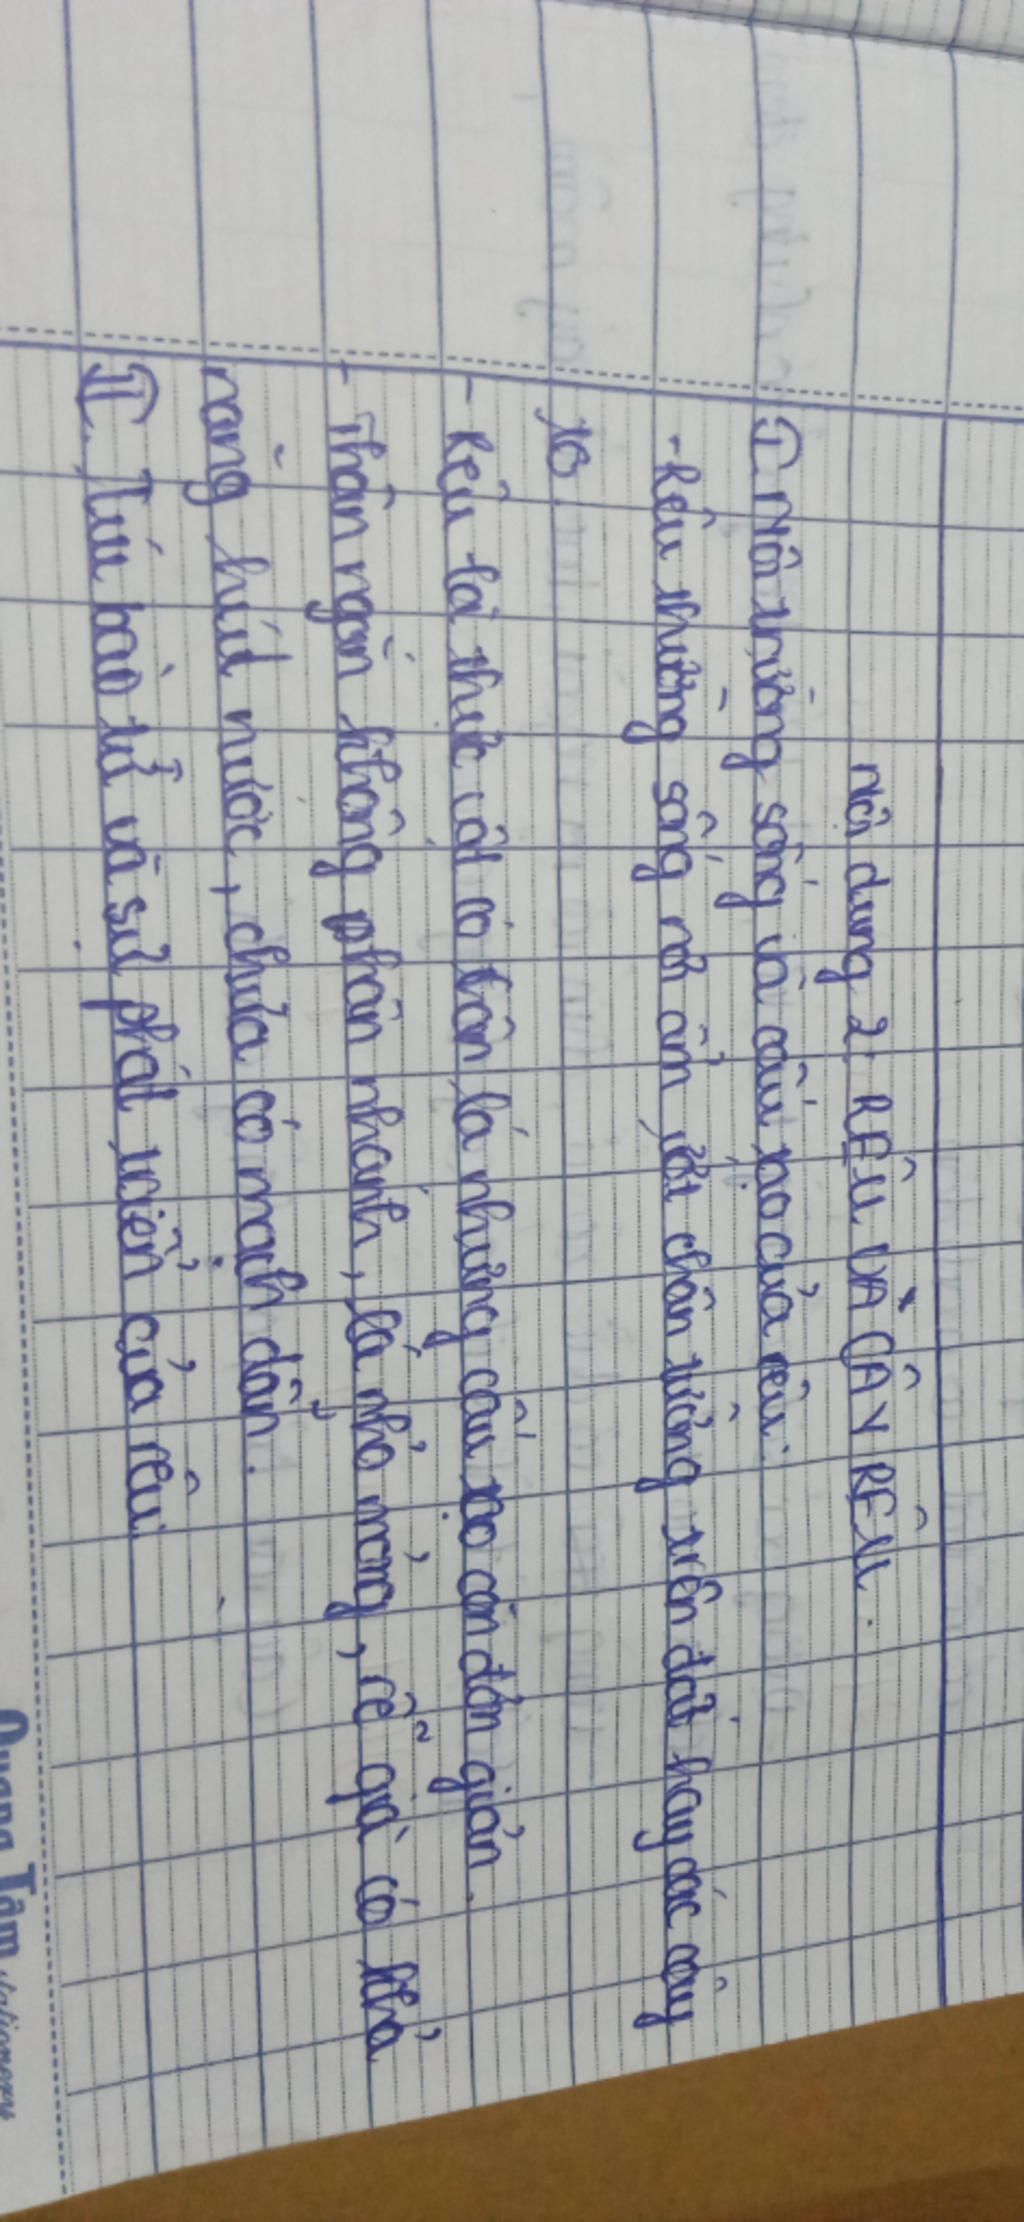 Nội dung 2: RÊU VÀ CÂY RÊU.
I. Môi trường sống và cấu tạo của rêu.
- Rêu thường sống nơi ẩm ướt chân tường trên đất hay các cây
to.
- Rêu là thực vật có thân, lá nhưng cấu tạo còn đơn giản.
- Thân ngắn không phân nhánh, lá nhỏ mỏng, rễ giả có khả
năng hút nước, chưa có mạch dẫn.
II. Túi bào tử và sự phát triển của rêu.
Quang Tâm stationery